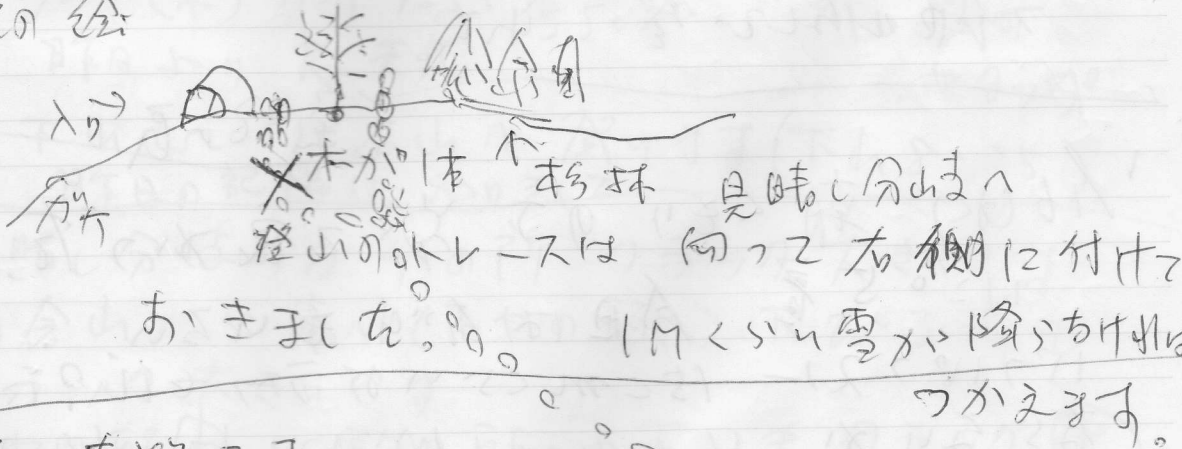 の絵
入口→
ガケ
木が1本 ↑ 杉林 見晴し分岐へ
登山のトレースは 向って右側に付けて
おきました。 1Mくらい雪が降らなければ
つかえます。